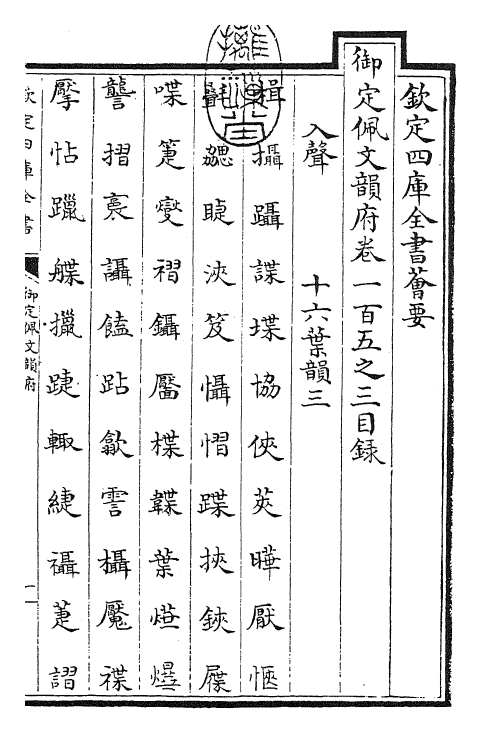 欽定四庫全書薈要
御定佩文韻府卷一百五之三目録
入聲　十六葉韻三
攝躡諜堞協俠莢曄厭愜
氎勰睫浹笈懾慴蹀挾鋏屧
喋箑燮褶鑷靨楪韘葉爗
讋摺裛讘饁跕歙霅欇魘褋
擪怗躐艓擸踕輒緁襵萐謵
欽定四庫全書
御定佩文韻府
一